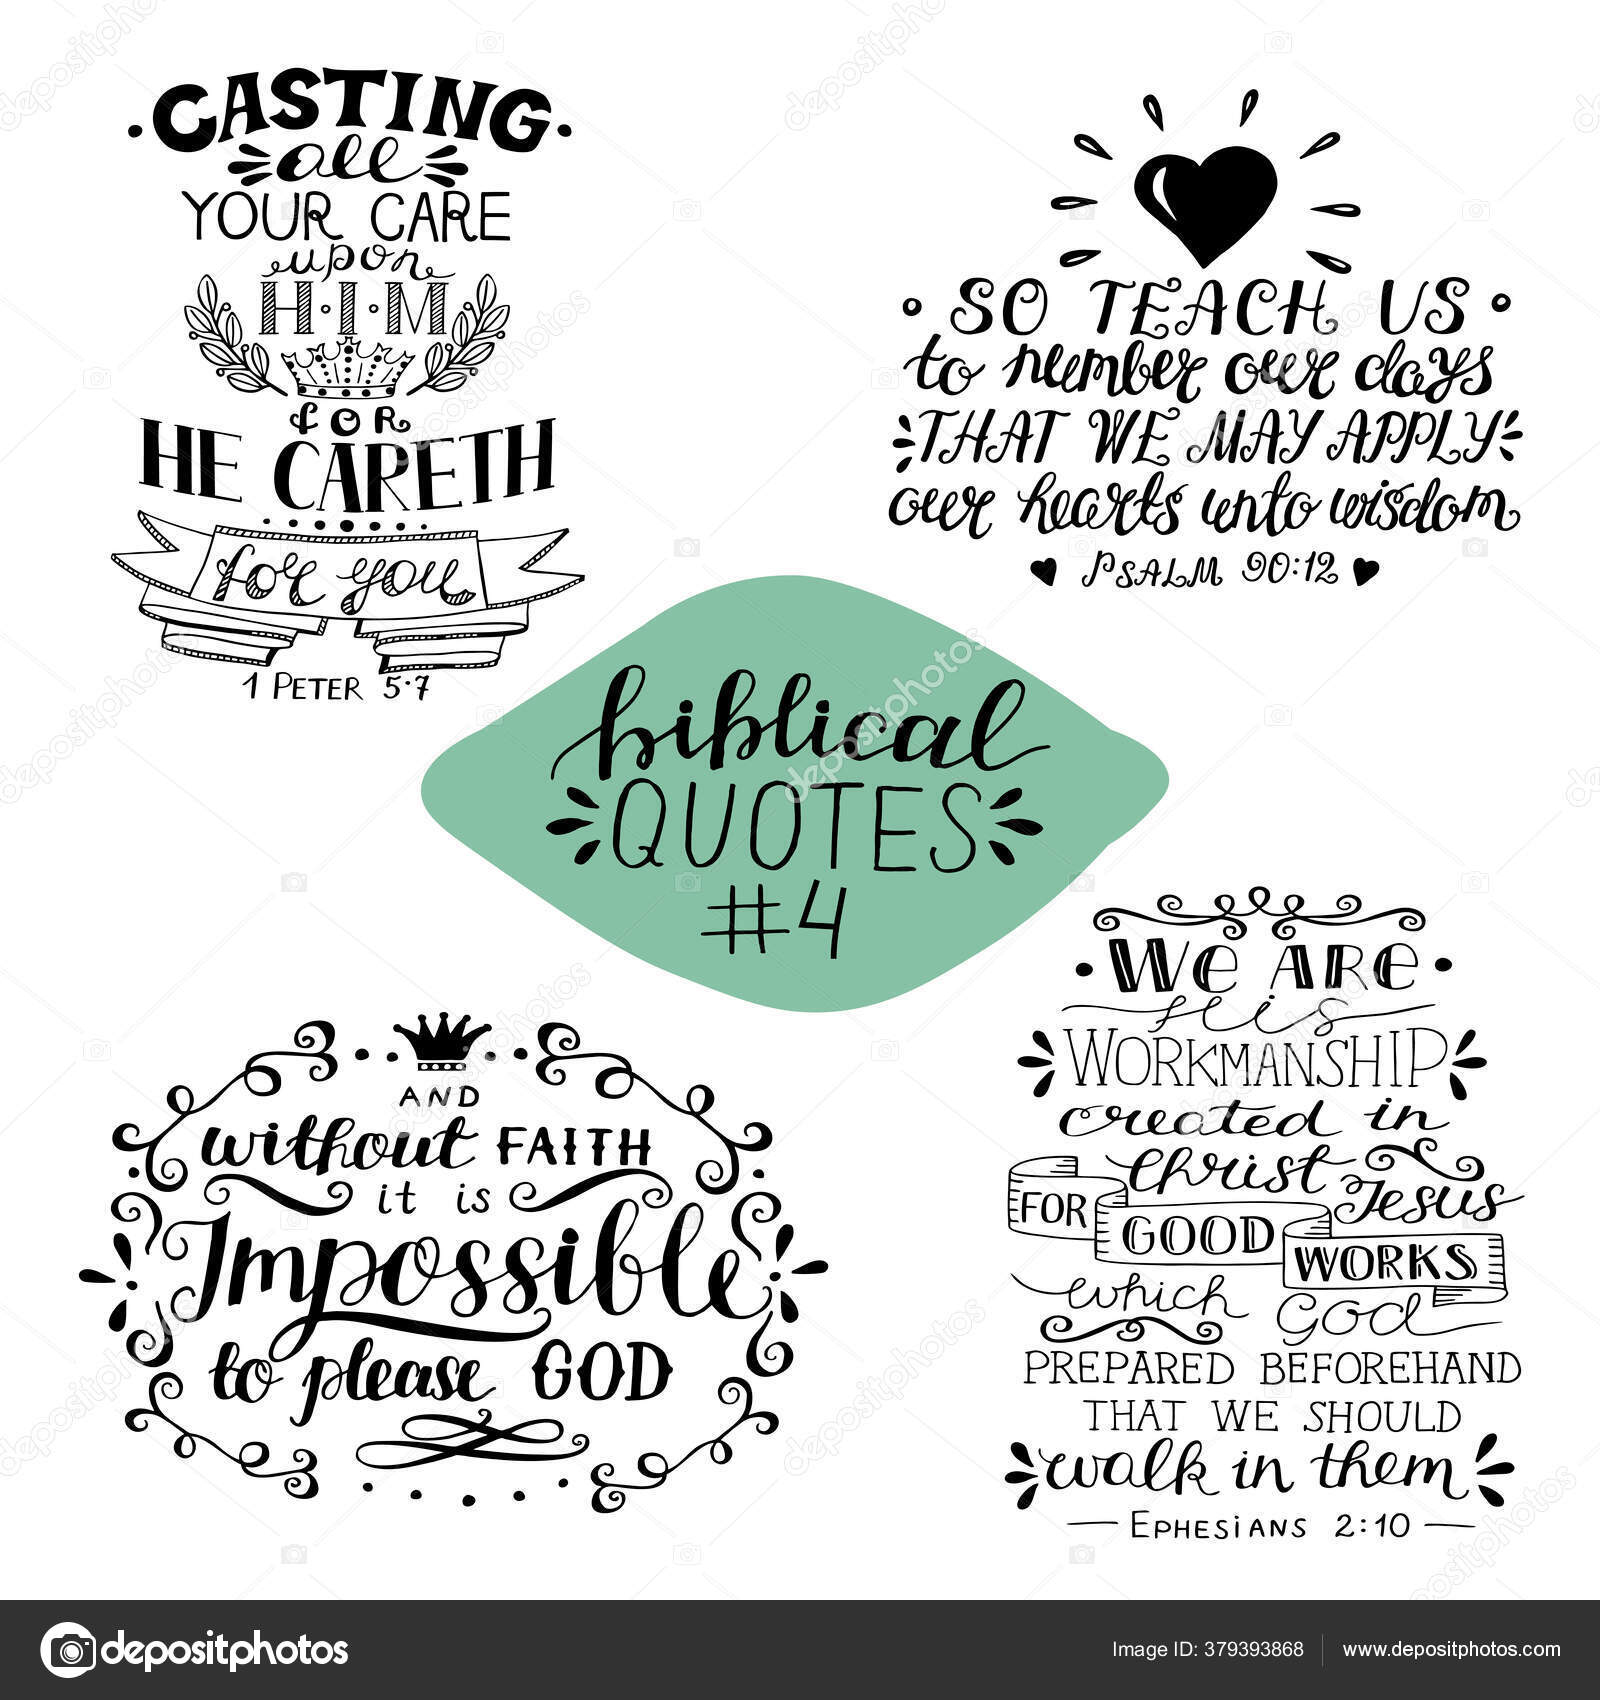 CASTING
all
YOUR CARE
upon
H·I·M
for
HE CARETH
for you
1 PETER 5·7
SO TEACH US
to number our days
THAT WE MAY APPLY
our hearts unto wisdom
PSALM 90:12
biblical
QUOTES
#4
AND
without FAITH
it is
Impossible
to please GOD
WE ARE
His
WORKMANSHIP
created in
Christ Jesus
FOR GOOD WORKS
which God
PREPARED BEFOREHAND
THAT WE SHOULD
walk in them
EPHESIANS 2:10
depositphotos
Image ID: 379393868
www.depositphotos.com